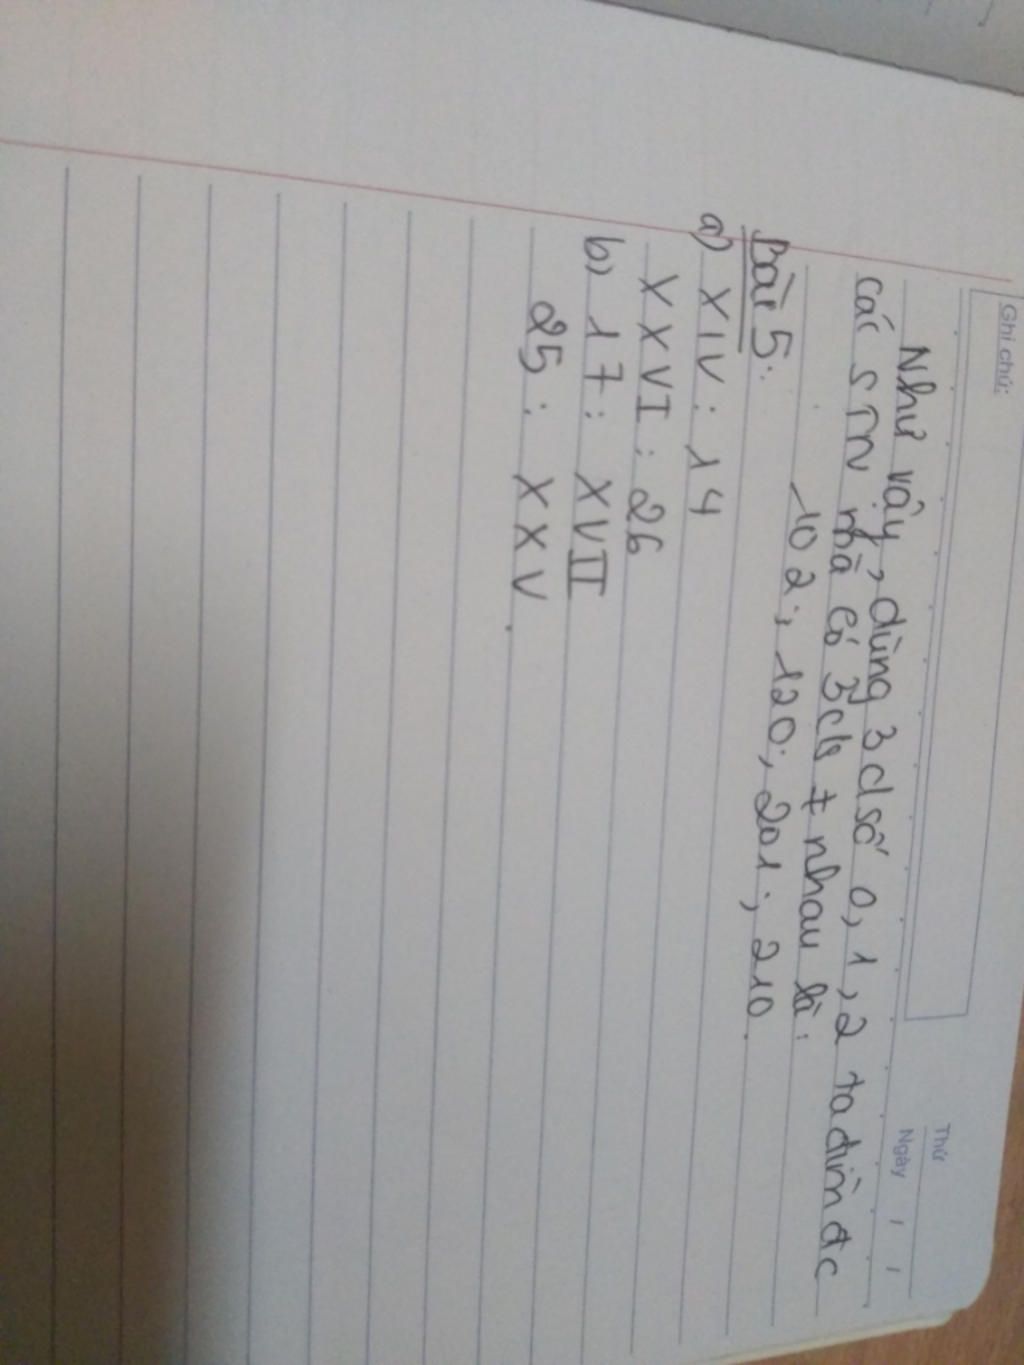 Ghi chú:
Thứ
Ngày / /
Như vậy, dùng 3 chsố 0, 1, 2 ta tìm đc
các STN mà có 3 cs ≠ nhau là:
102; 120; 201; 210.
Bài 5:
a) XIV: 14
XXVI: 26
b) 17: XVII
25: XXV.